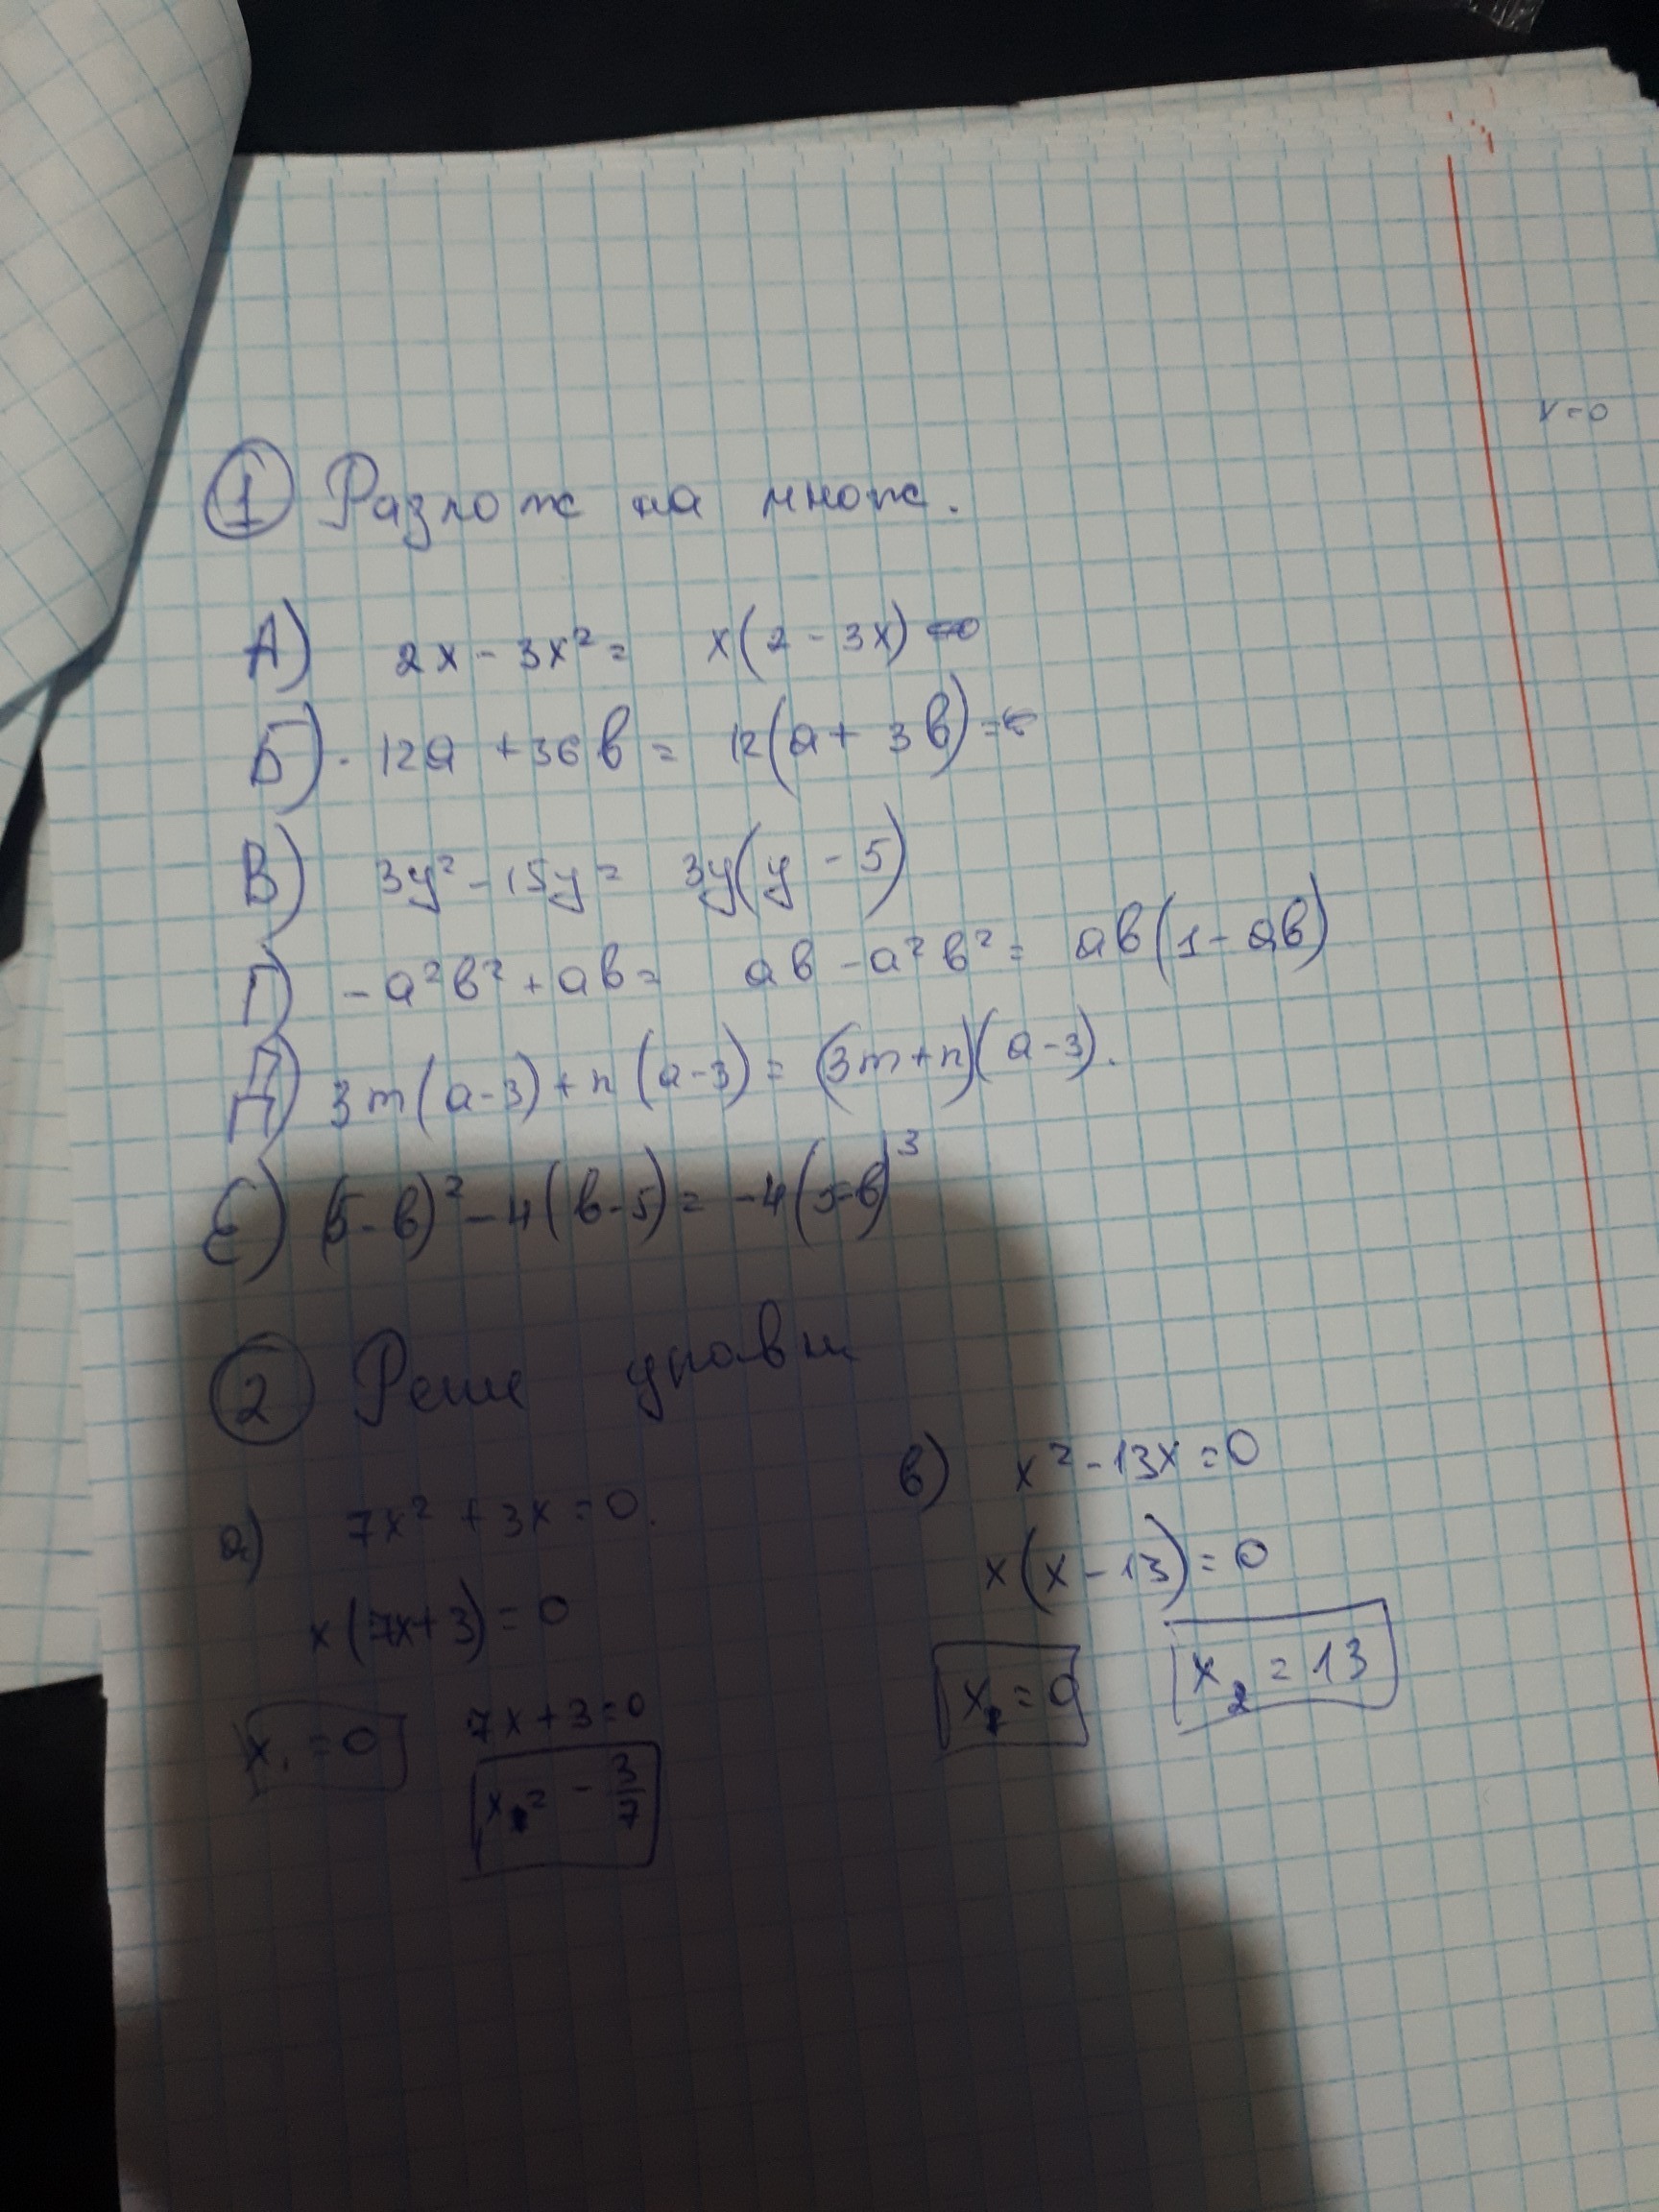 x=0
① Разлож на множ.
А) 2x - 3x² = x(2 - 3x)
Б) 12a + 36b = 12(a + 3b) =
В) 3y² - 15y = 3y(y - 5)
Г) -a²b² + ab = ab - a²b² = ab(1 - ab)
Д) 3m(a-3) + n(a-3) = (3m+n)(a-3).
Е) (5-b)² - 4(b-5) = -4(5-b)³
② Реши уравн
а) 7x² + 3x = 0.
x(7x+3) = 0
7x+3=0
x₁ = 0
x₂ = -3/7
в) x² - 13x = 0
x(x - 13) = 0
x₁ = 0 x₂ = 13